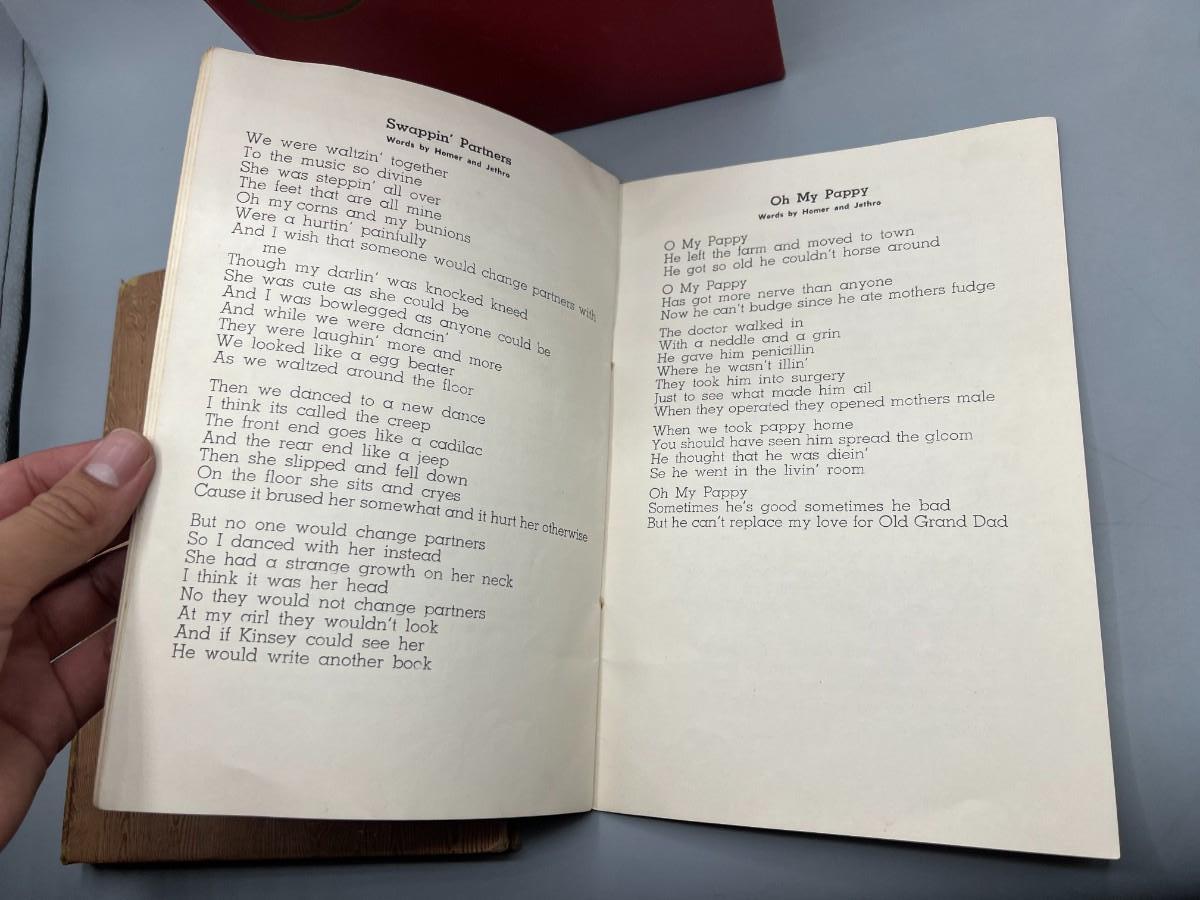 Swappin' Partners
Words by Homer and Jethro
We were waltzin' together
To the music so divine
She was steppin' all over
The feet that are all mine
Oh my corns and my bunions
Were a hurtin' painfully
And I wish that someone would change partners with
me
Though my darlin' was knocked kneed
She was cute as she could be
And I was bowlegged as anyone could be
And while we were dancin'
They were laughin' more and more
We looked like a egg beater
As we waltzed around the floor
Then we danced to a new dance
I think its called the creep
The front end goes like a cadilac
And the rear end like a jeep
Then she slipped and fell down
On the floor she sits and cryes
Cause it brused her somewhat and it hurt her otherwise
But no one would change partners
So I danced with her instead
She had a strange growth on her neck
I think it was her head
No they would not change partners
At my girl they wouldn't look
And if Kinsey could see her
He would write another book
Oh My Pappy
Words by Homer and Jethro
O My Pappy
He left the farm and moved to town
He got so old he couldn't horse around
O My Pappy
Has got more nerve than anyone
Now he can't budge since he ate mothers fudge
The doctor walked in
With a neddle and a grin
He gave him penicillin
Where he wasn't illin'
They took him into surgery
Just to see what made him ail
When they operated they opened mothers male
When we took pappy home
You should have seen him spread the gloom
He thought that he was diein'
Se he went in the livin' room
Oh My Pappy
Sometimes he's good sometimes he bad
But he can't replace my love for Old Grand Dad